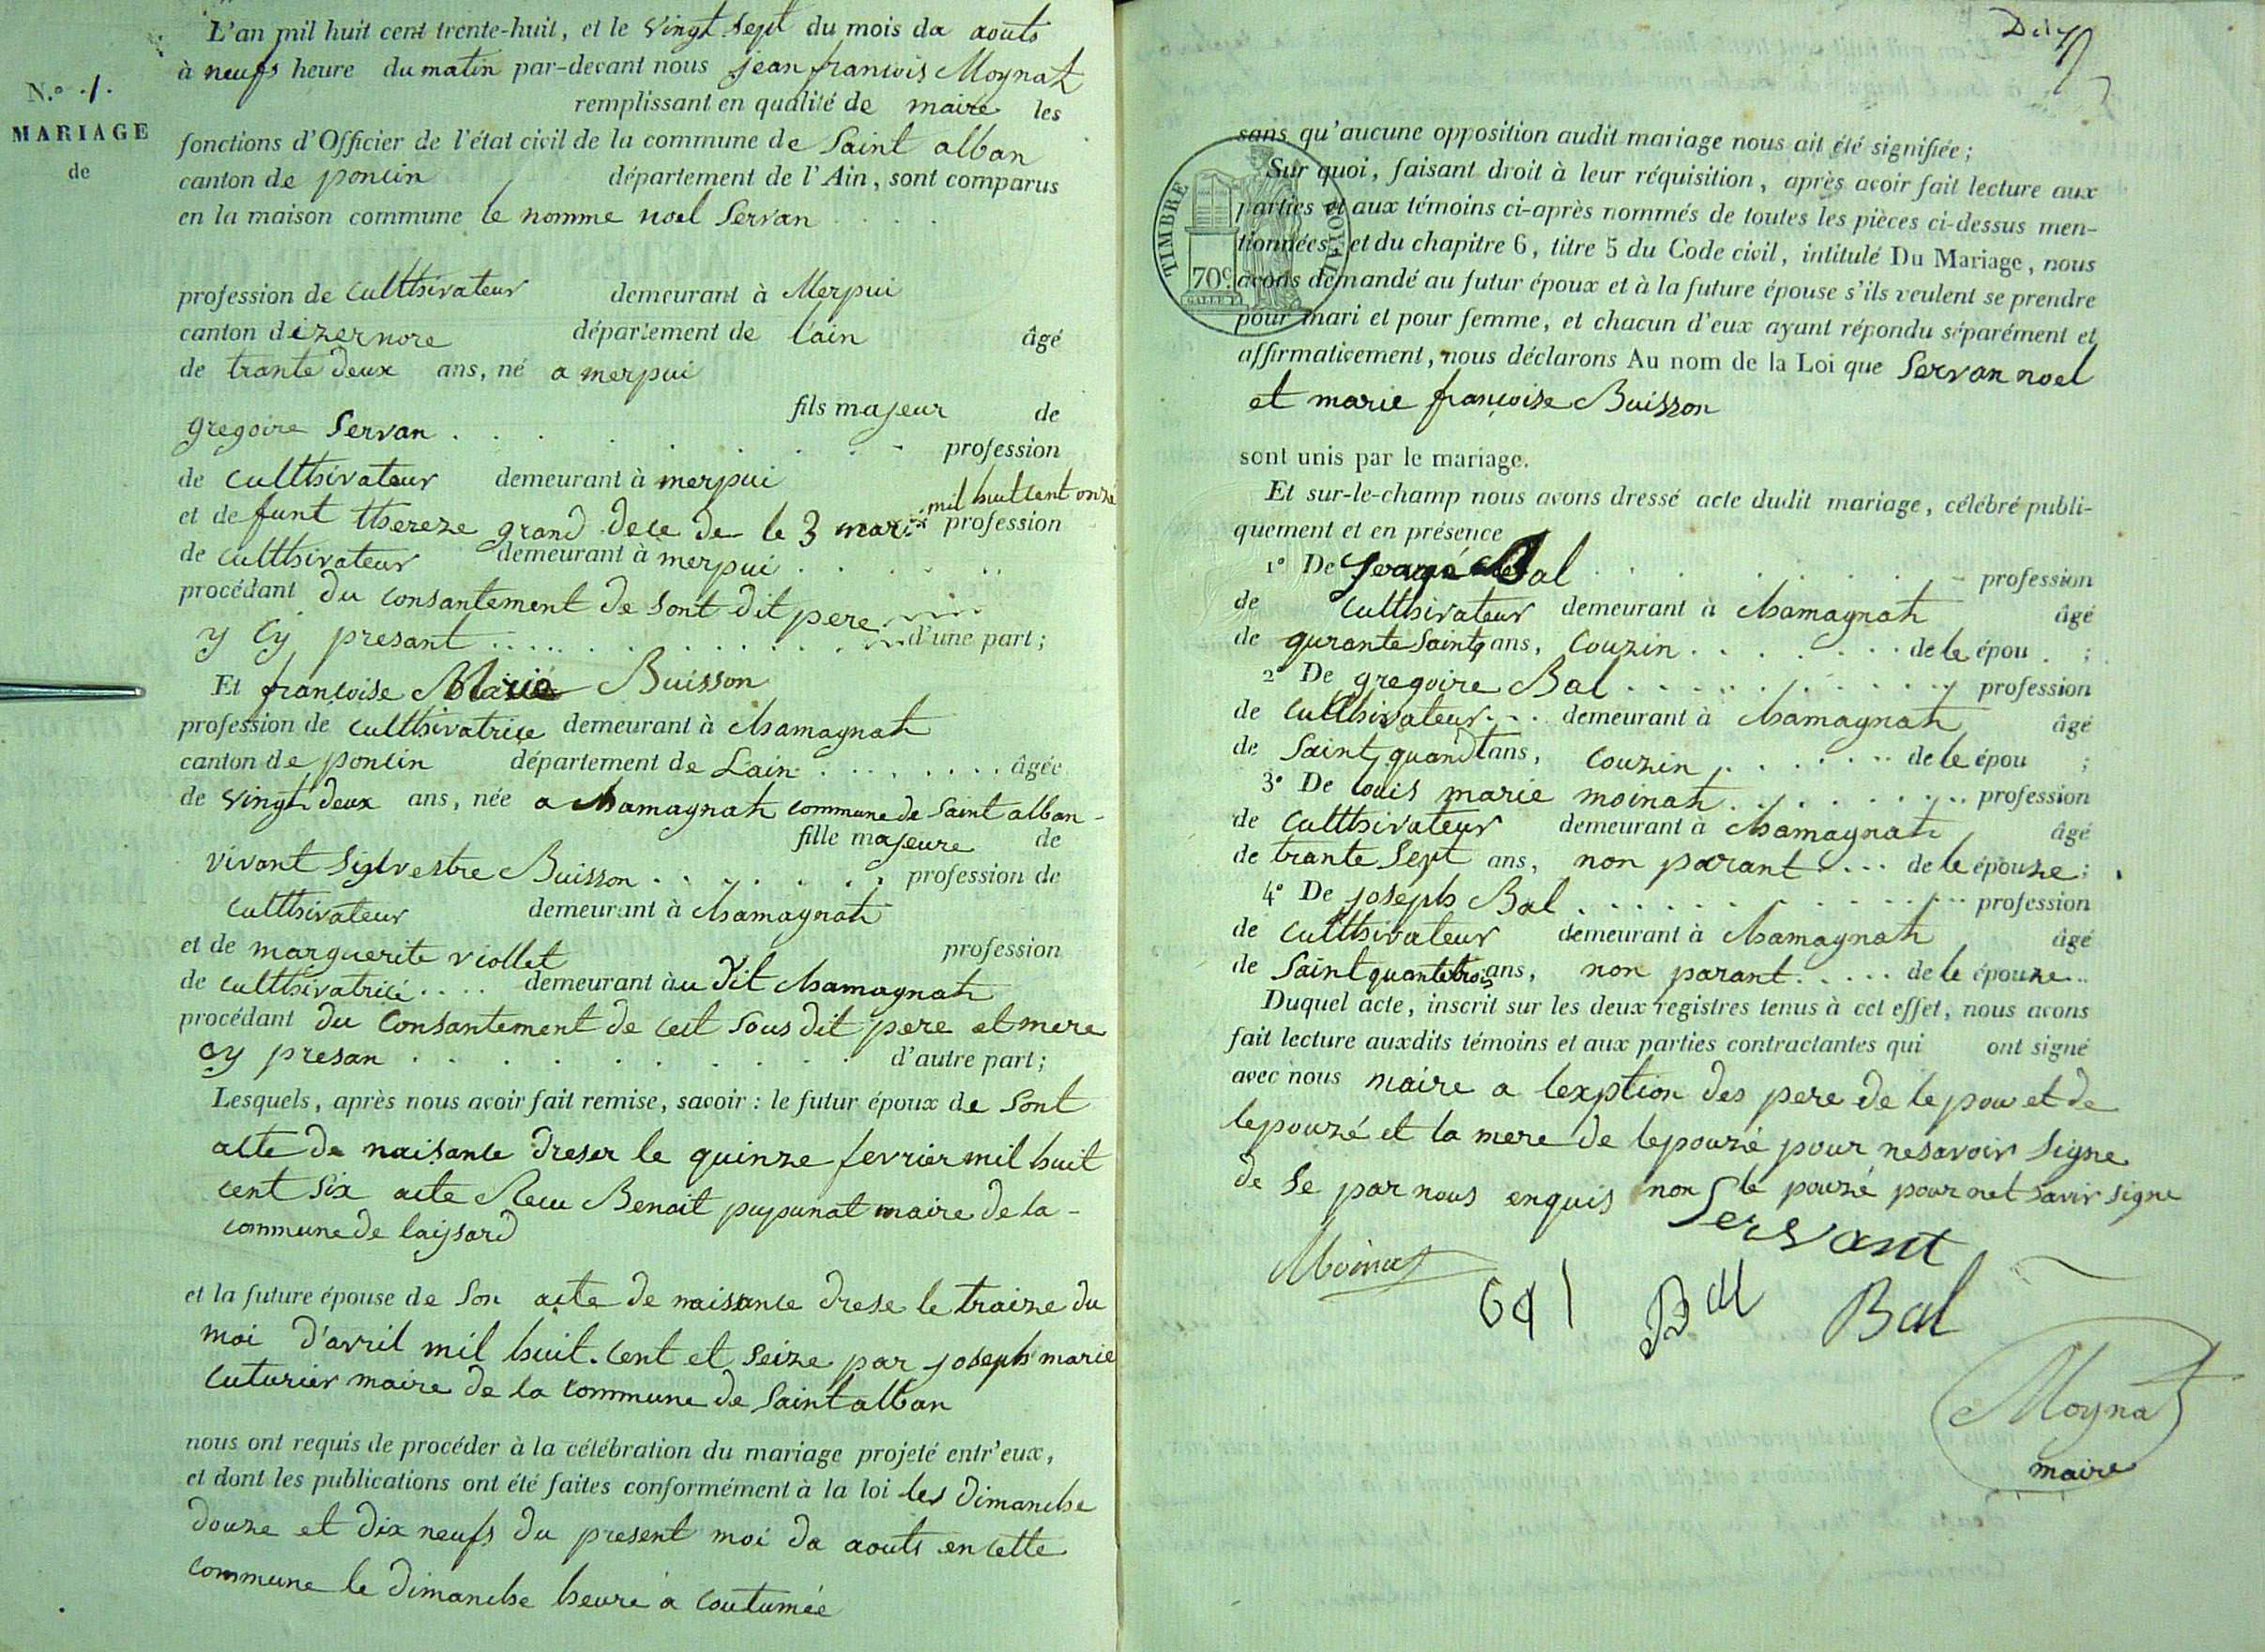 L'an mil huit cent trente-huit, et le vingt sept du mois da aouts
à neufs heure du matin par-devant nous jean francois Moynat
N.º 1.
remplissant en qualité de maire les
MARIAGE
fonctions d'Officier de l'état civil de la commune de Saint alban
de
canton de poncin département de l'Ain, sont comparus
en la maison commune le nomme noel Servan
profession de culthivateur demeurant à Merpui
canton dizernore département de lain âgé
de trante deux ans, né a merpui
fils majeur de
gregoire Servan
profession
de culthivateur demeurant à merpui
mil huit cent onze
et de funt thereze grand dece de le 3 mars profession
de culthivateur demeurant à merpui
procédant du consantement de sont dit pere
y cy presant d'une part;
Et françoise Marie Buisson
profession de culthivatrice demeurant à chamagnat
canton de poncin département de Lain âgée
de vingt deux ans, née a chamagnat commune de Saint alban
fille majeure de
vivant Siglvestre Buisson profession de
culthivateur demeurant à chamagnat
et de marguerite viollet profession
de culthivatrice demeurant àu dit chamagnat
procédant du consantement de cest sous dit pere et mere
cy presan d'autre part;
Lesquels, après nous avoir fait remise, savoir : le futur époux de sont
acte de naisance dreser le quinze fevrier mil huit
cent six acte Recu Benoit puysunat maire de la
commune de laissard
et la future épouse de son acte de naisance drese le traize du
moi d'avril mil huit cent et seize par joseph marie
cuturier maire de la commune de Saint alban
nous ont requis de procéder à la célébration du mariage projeté entr'eux,
et dont les publications ont été faites conformément à la loi les dimanche
douze et dix neufs du present moi da aouts en cette
commune le dimanche heure a coutumée
sans qu'aucune opposition audit mariage nous ait été signifiée;
Sur quoi, faisant droit à leur réquisition, après avoir fait lecture aux
parties et aux témoins ci-après nommés de toutes les pièces ci-dessus men-
tionnées, et du chapitre 6, titre 5 du Code civil, intitulé Du Mariage, nous
avons demandé au futur époux et à la future épouse s'ils veulent se prendre
pour mari et pour femme, et chacun d'eux ayant répondu séparément et
affirmativement, nous déclarons Au nom de la Loi que Servan noel
et marie françoise Buisson
TIMBRE ROYAL
70c.
sont unis par le mariage.
Et sur-le-champ nous avons dressé acte dudit mariage, célébré publi-
quement et en présence
1º De Bal profession
de culthivateur demeurant à chamagnat âgé
de qurante saint ans, couzin de le épou ;
2º De gregoire Bal profession
de culthivateur demeurant à chamagnat âgé
de saint quandt ans, couzin de le épou ;
3º De louis marie moinat profession
de culthivateur demeurant à chamagnat âgé
de trante sept ans, non parant de le épouze ;
4º De joseph Bal profession
de culthivateur demeurant à chamagnat âgé
de saint quante trois ans, non parant de le épouze
Duquel acte, inscrit sur les deux registres tenus à cet effet, nous avons
fait lecture auxdits témoins et aux parties contractantes qui ont signé
avec nous maire a lexption des pere de lepou et de
lepouzé et la mere de lepouzé pour nesavoir signe
de se par nous enquis non le pouzé pour net savir signe
Servant
Moinat Bal Bal
Moynat
maire